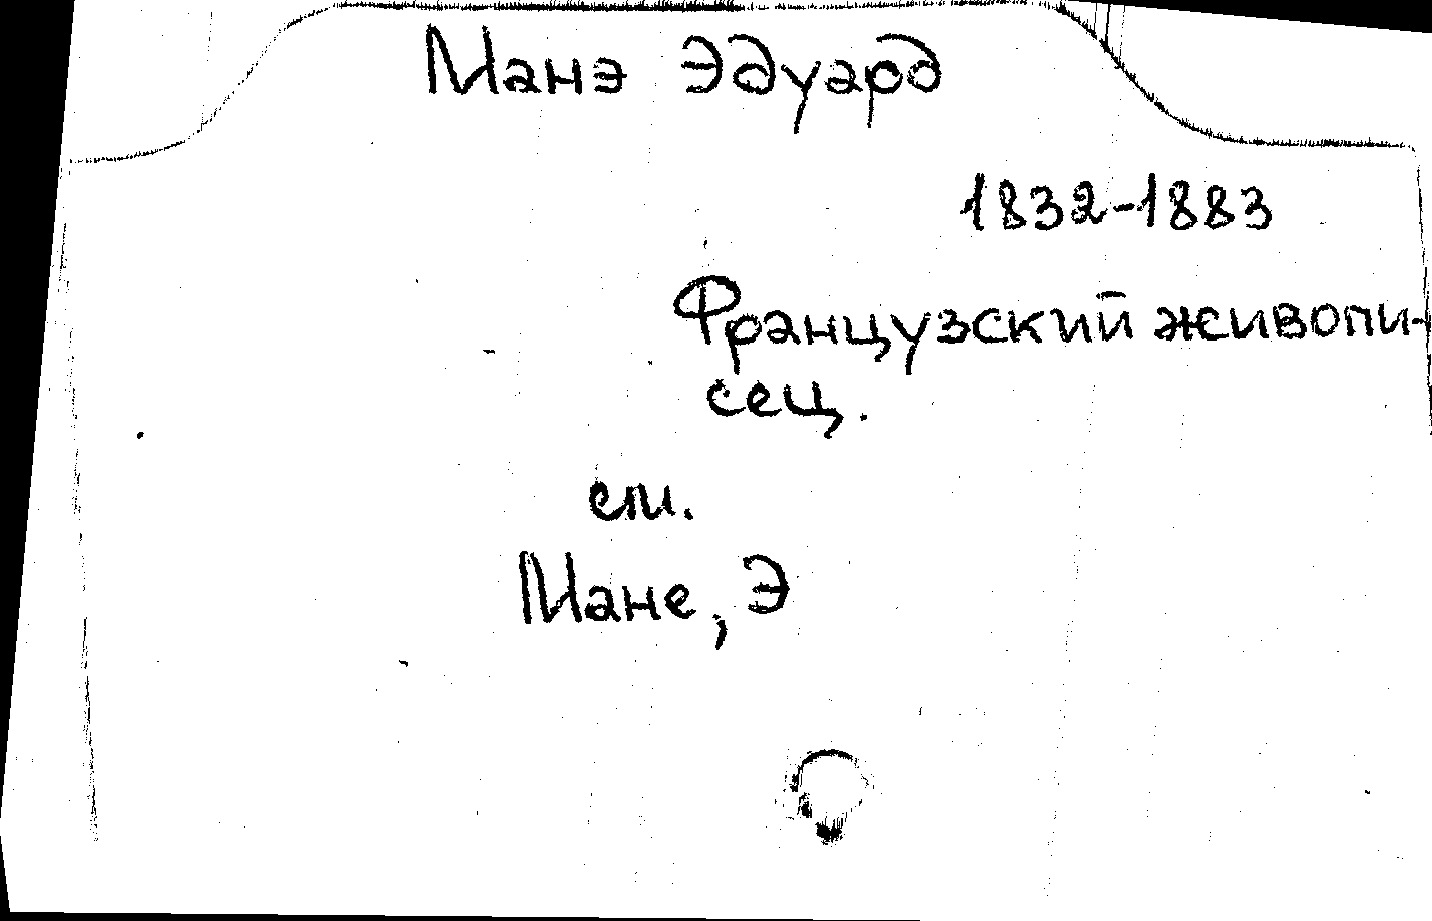 Манэ Эдуард
1832-1883
Французский живопи-
сец.
см.
Мане, Э